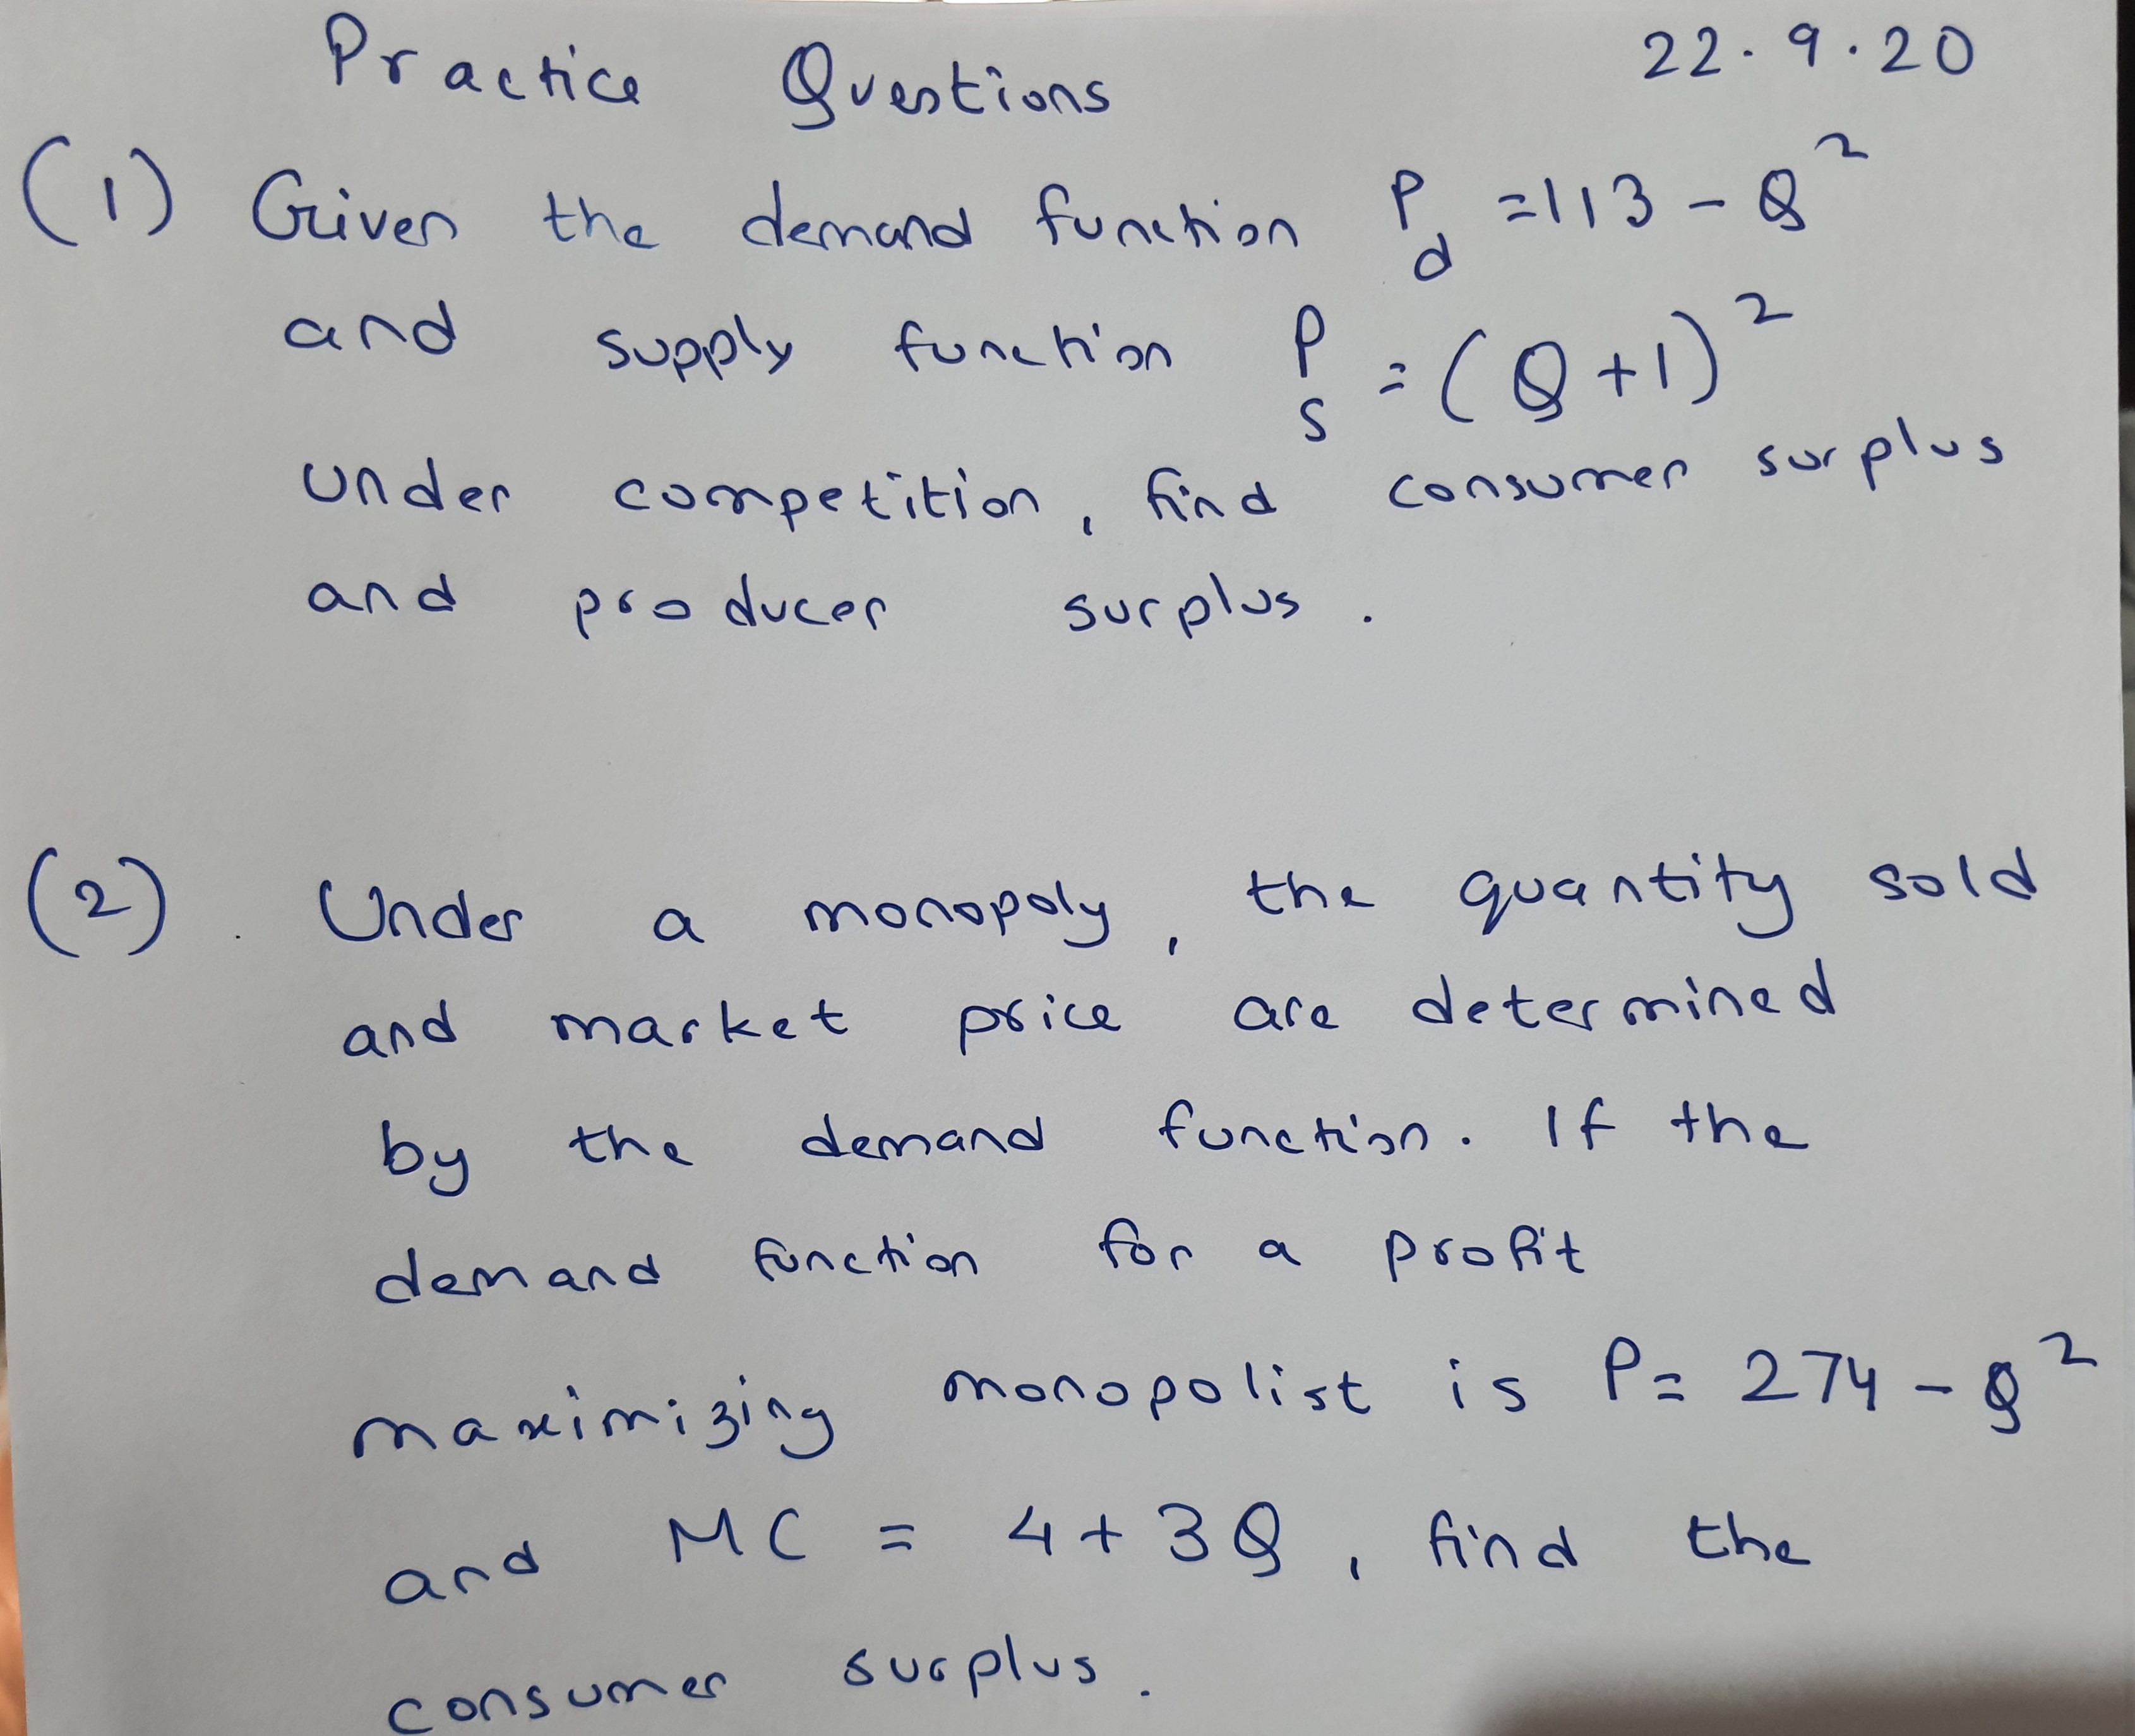 Practice Questions 22.9.20
(1) Given the demand function P_d = 113 - Q²
and supply function P_s = (Q+1)²
under competition, find consumer surplus
and producer surplus.
(2). Under a monopoly, the quantity sold
and market price are determined
by the demand function. If the
demand function for a profit
maximizing monopolist is P = 274 - Q²
and MC = 4 + 3Q, find the
consumer surplus.